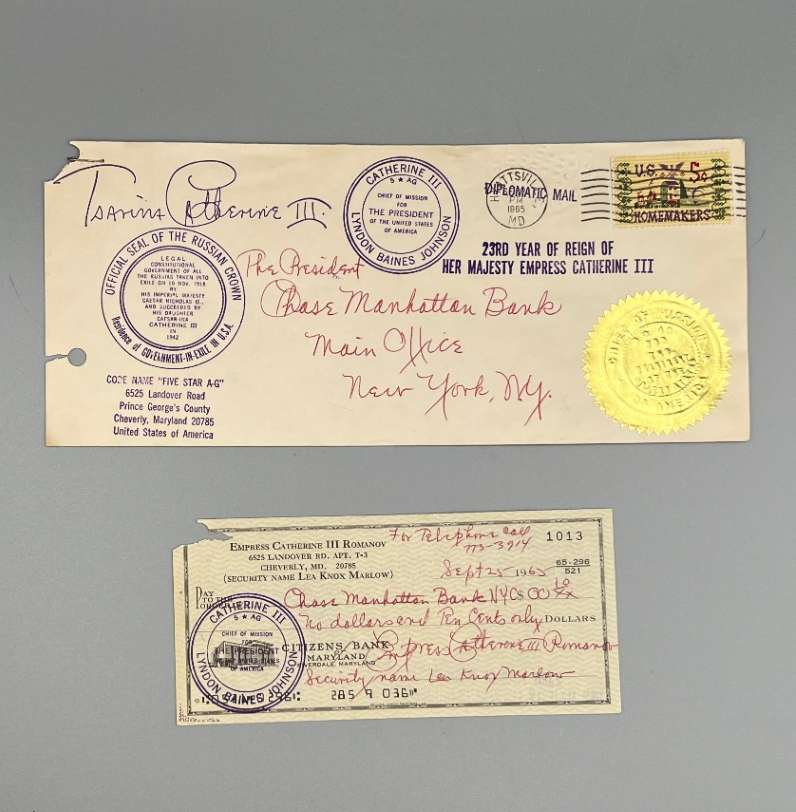 Tsarina Catherine III.
CATHERINE III
5 ★ AG
CHIEF OF MISSION
FOR
THE PRESIDENT
OF THE UNITED STATES
OF AMERICA
LYNDON BAINES JOHNSON
HYATTSVILLE
PM
1965
MD
DIPLOMATIC MAIL
U.S. 5¢
HOMEMAKERS
23RD YEAR OF REIGN OF
HER MAJESTY EMPRESS CATHERINE III
OFFICIAL SEAL OF THE RUSSIAN CROWN
LEGAL
CONSTITUTIONAL
GOVERNMENT OF ALL
THE RUSSIAS TAKEN INTO
EXILE ON 10 NOV. 1918
BY
HIS IMPERIAL MAJESTY
CAESAR NICHOLAS II.,
AND SUCCEEDED BY
HIS DAUGHTER
CATHERINE III
IN
1942
Residence of GOVERNMENT-IN-EXILE IN U.S.A.
The President
Chase Manhattan Bank
Main Office
New York, NY.
CODE NAME "FIVE STAR A-G"
6525 Landover Road
Prince George's County
Cheverly, Maryland 20785
United States of America
EMPRESS CATHERINE III ROMANOV
6525 LANDOVER RD. APT. T-3
CHEVERLY, MD. 20785
(SECURITY NAME LEA KNOX MARLOW)
For Telephone Call
773-3914
1013
Sept 25 1965
65-296
521
PAY TO THE ORDER OF
Chase Manhattan Bank NYC $ 00 10/xx
No dollars and Ten Cents only DOLLARS
CATHERINE III
5 ★ AG
CHIEF OF MISSION
FOR
THE PRESIDENT
OF THE UNITED STATES
OF AMERICA
LYNDON BAINES JOHNSON
CITIZENS BANK
OF MARYLAND
RIVERDALE, MARYLAND
Empress Catherine III Romanov
Security name Lea Knox Marlow
285 9 036